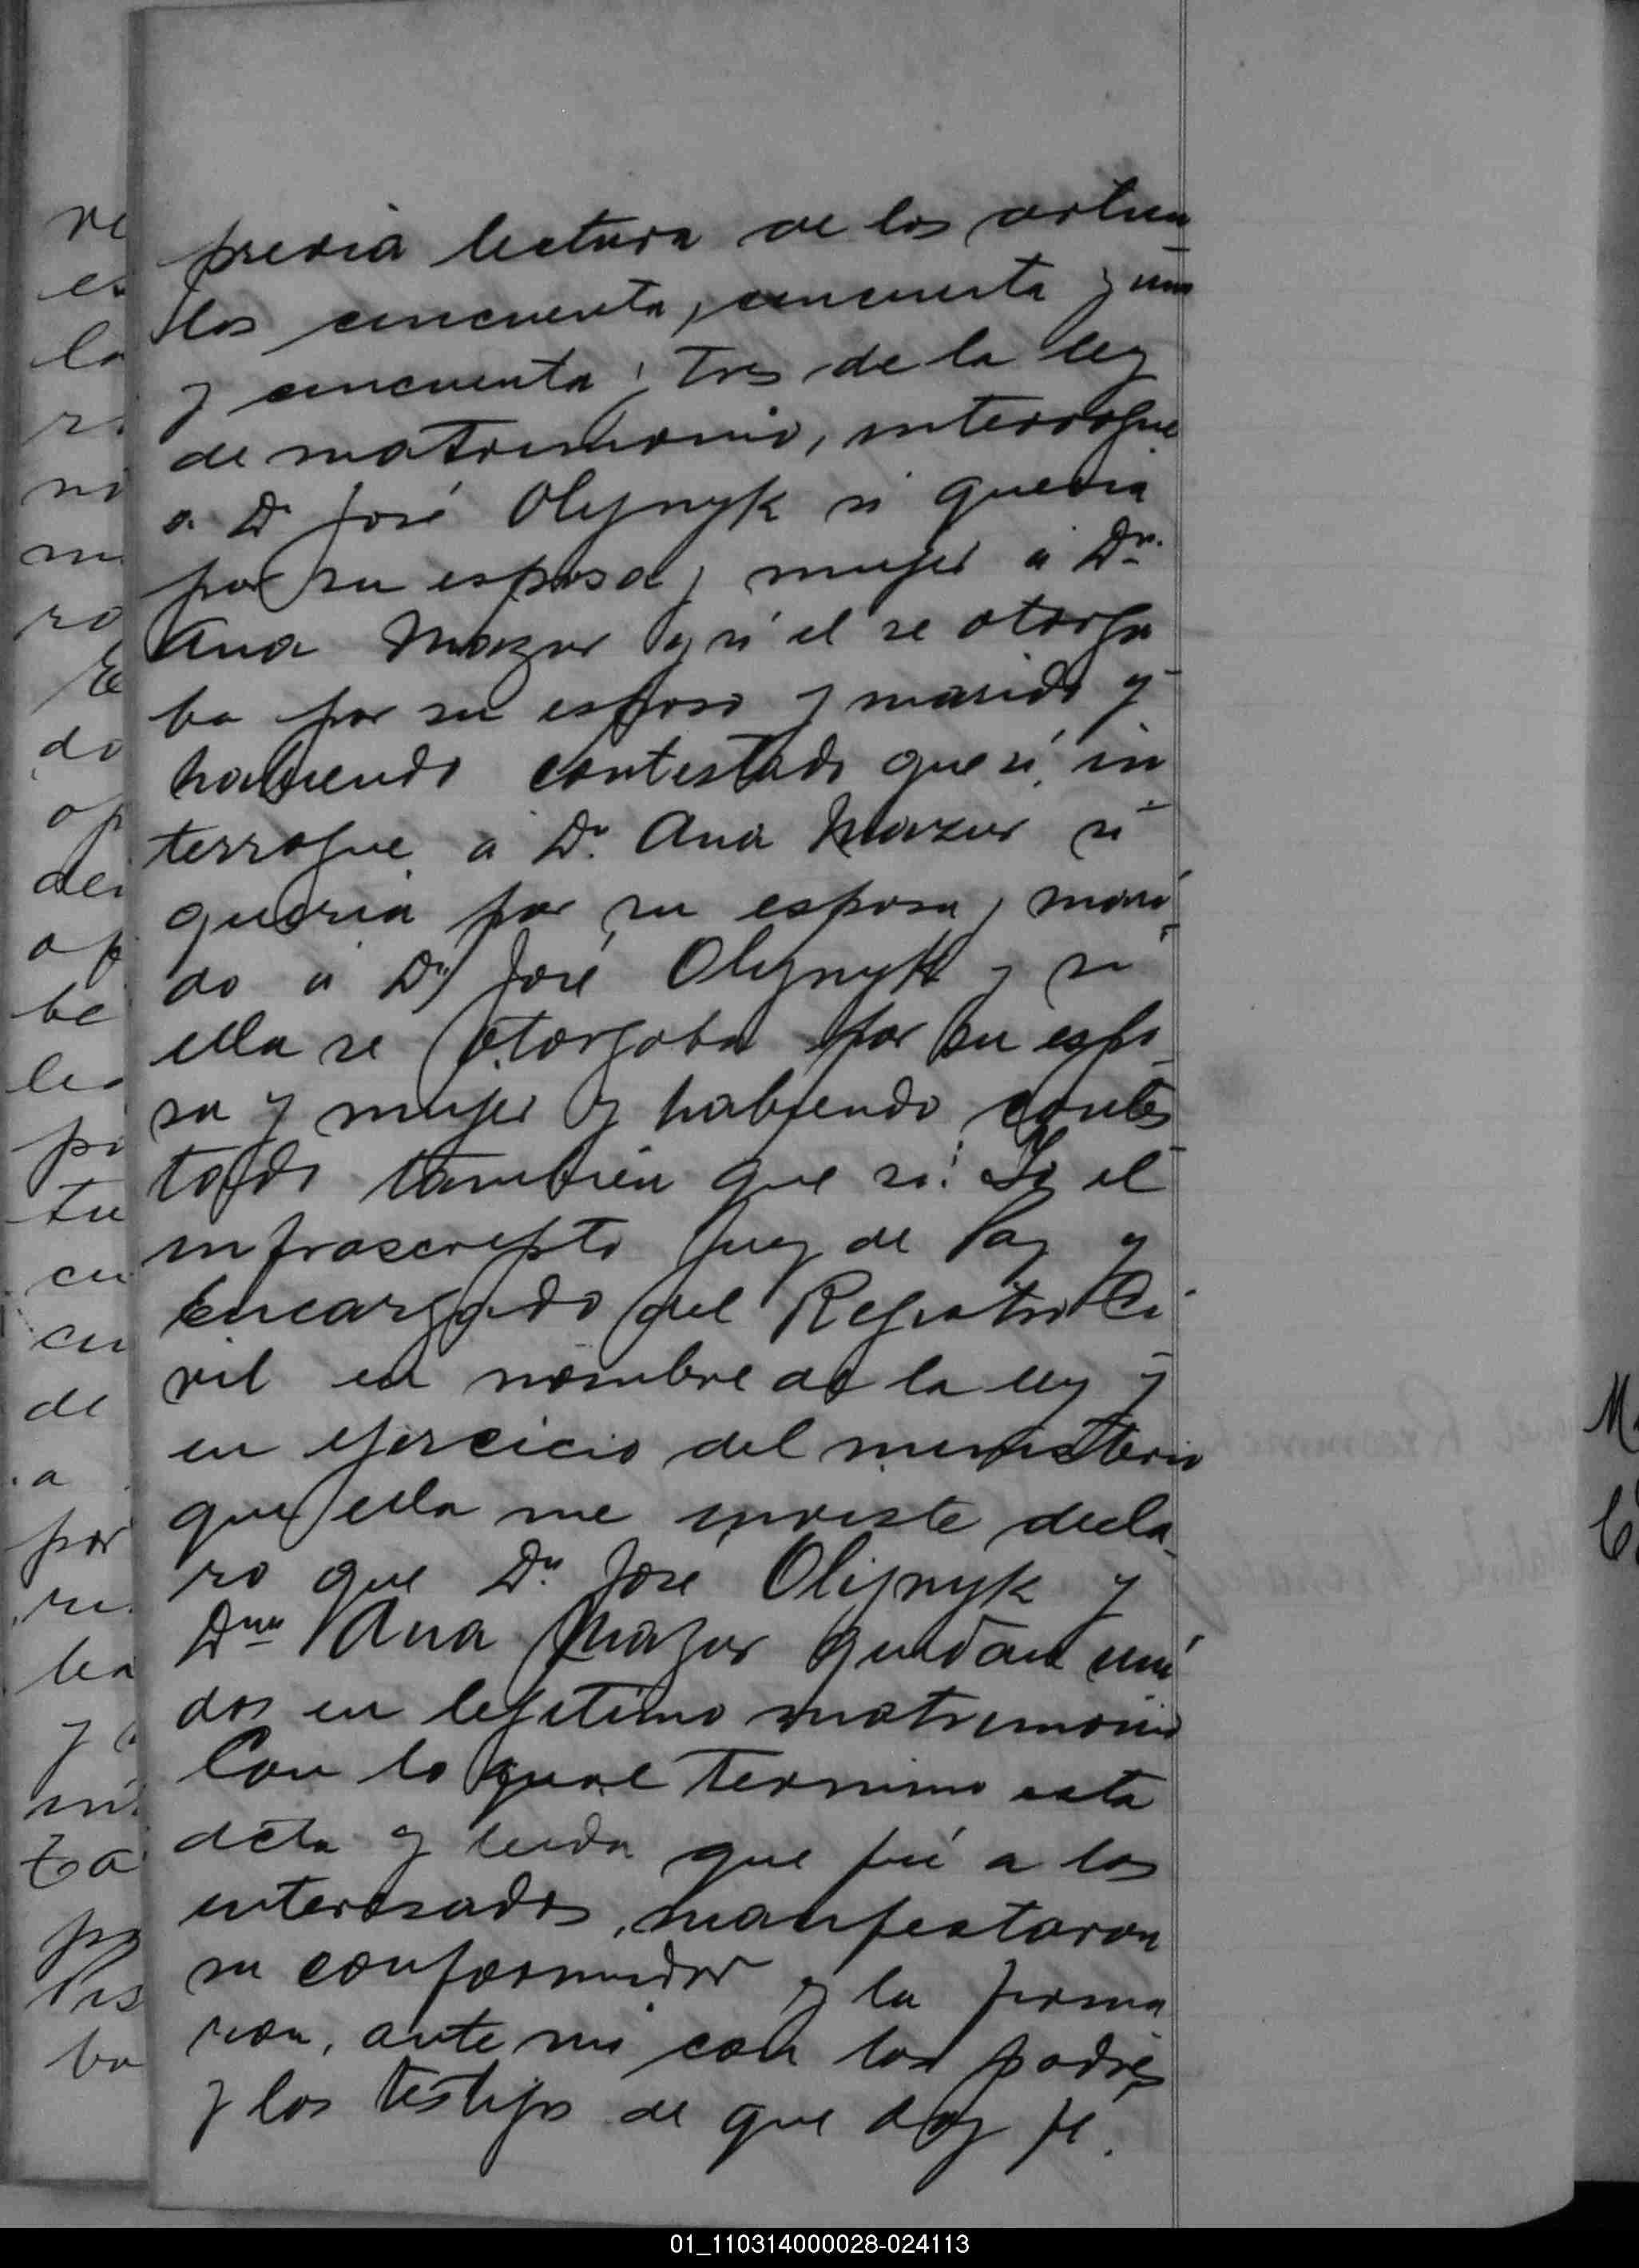 previa lectura de los articu
los cincuenta, cincuenta y uno
y cincuenta y tres de la ley
de matrimonio, interrogue
a Dn José Olijnyk si queria
por su esposa y mujer a Dña
Ana Mazur y si el se otorga
ba por su esposo y marido y
habiendo contestado que si, in
terrogue a Da. Ana Mazur si
queria por su esposo y mari
do a Dn José Olijnyk y si
ella se otorgaba por su espo
sa y mujer y habiendo contes
tado tambien que si. Yo el
infrascripto Juez de Paz y
Encargado del Registro Ci
vil en nombre de la ley y
en ejercicio del ministerio
que ella me inviste decla
ro que Dn José Olijnyk y
Dña Ana Mazur quedan uni
dos en legitimo matrimonio
Con lo qual termino esta
acta y leida que fué a los
interesados, manifestaron
su conformidad y la firma
ron, ante mi con los padres
y los testigos de que doy fé.
01_110314000028-024113